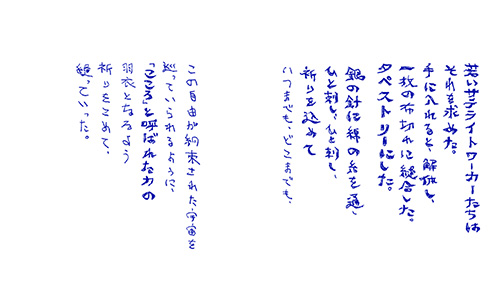 若いサテライトワーカーたちは
それを求めた。
手に入れると、解体し、
一枚の布切れに縫合した。
タペストリーにした。
銀の針に絹の糸を通し、
ひと刺し、ひと刺し、
祈りを込めて
いつまでも、どこまでも、
この自由が約束された宇宙を
巡っていられるように、
「こころ」と呼ばれたカの
羽衣となるよう
祈りをこめて、
縫っていった。